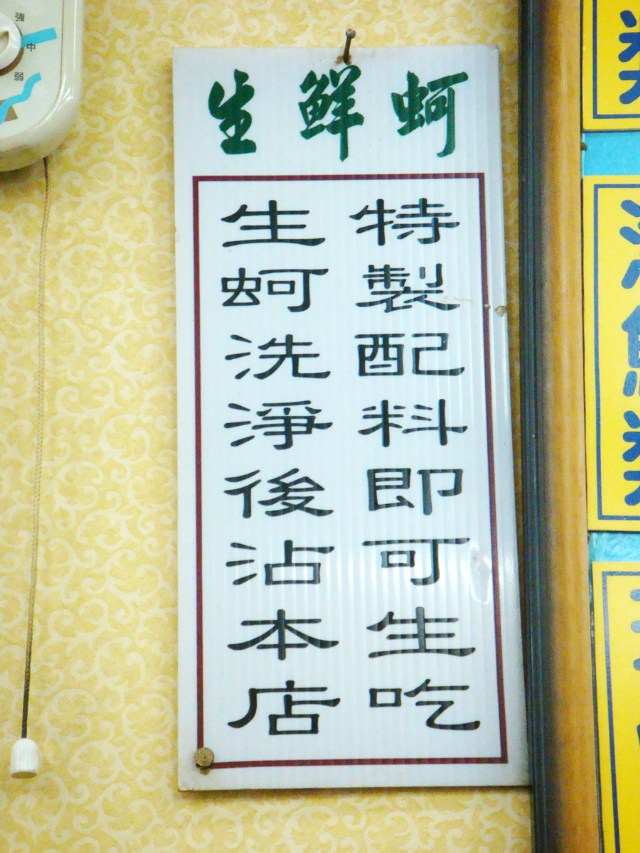 強
中
弱
生鮮蚵
生蚵洗淨後沾本店
特製配料即可生吃